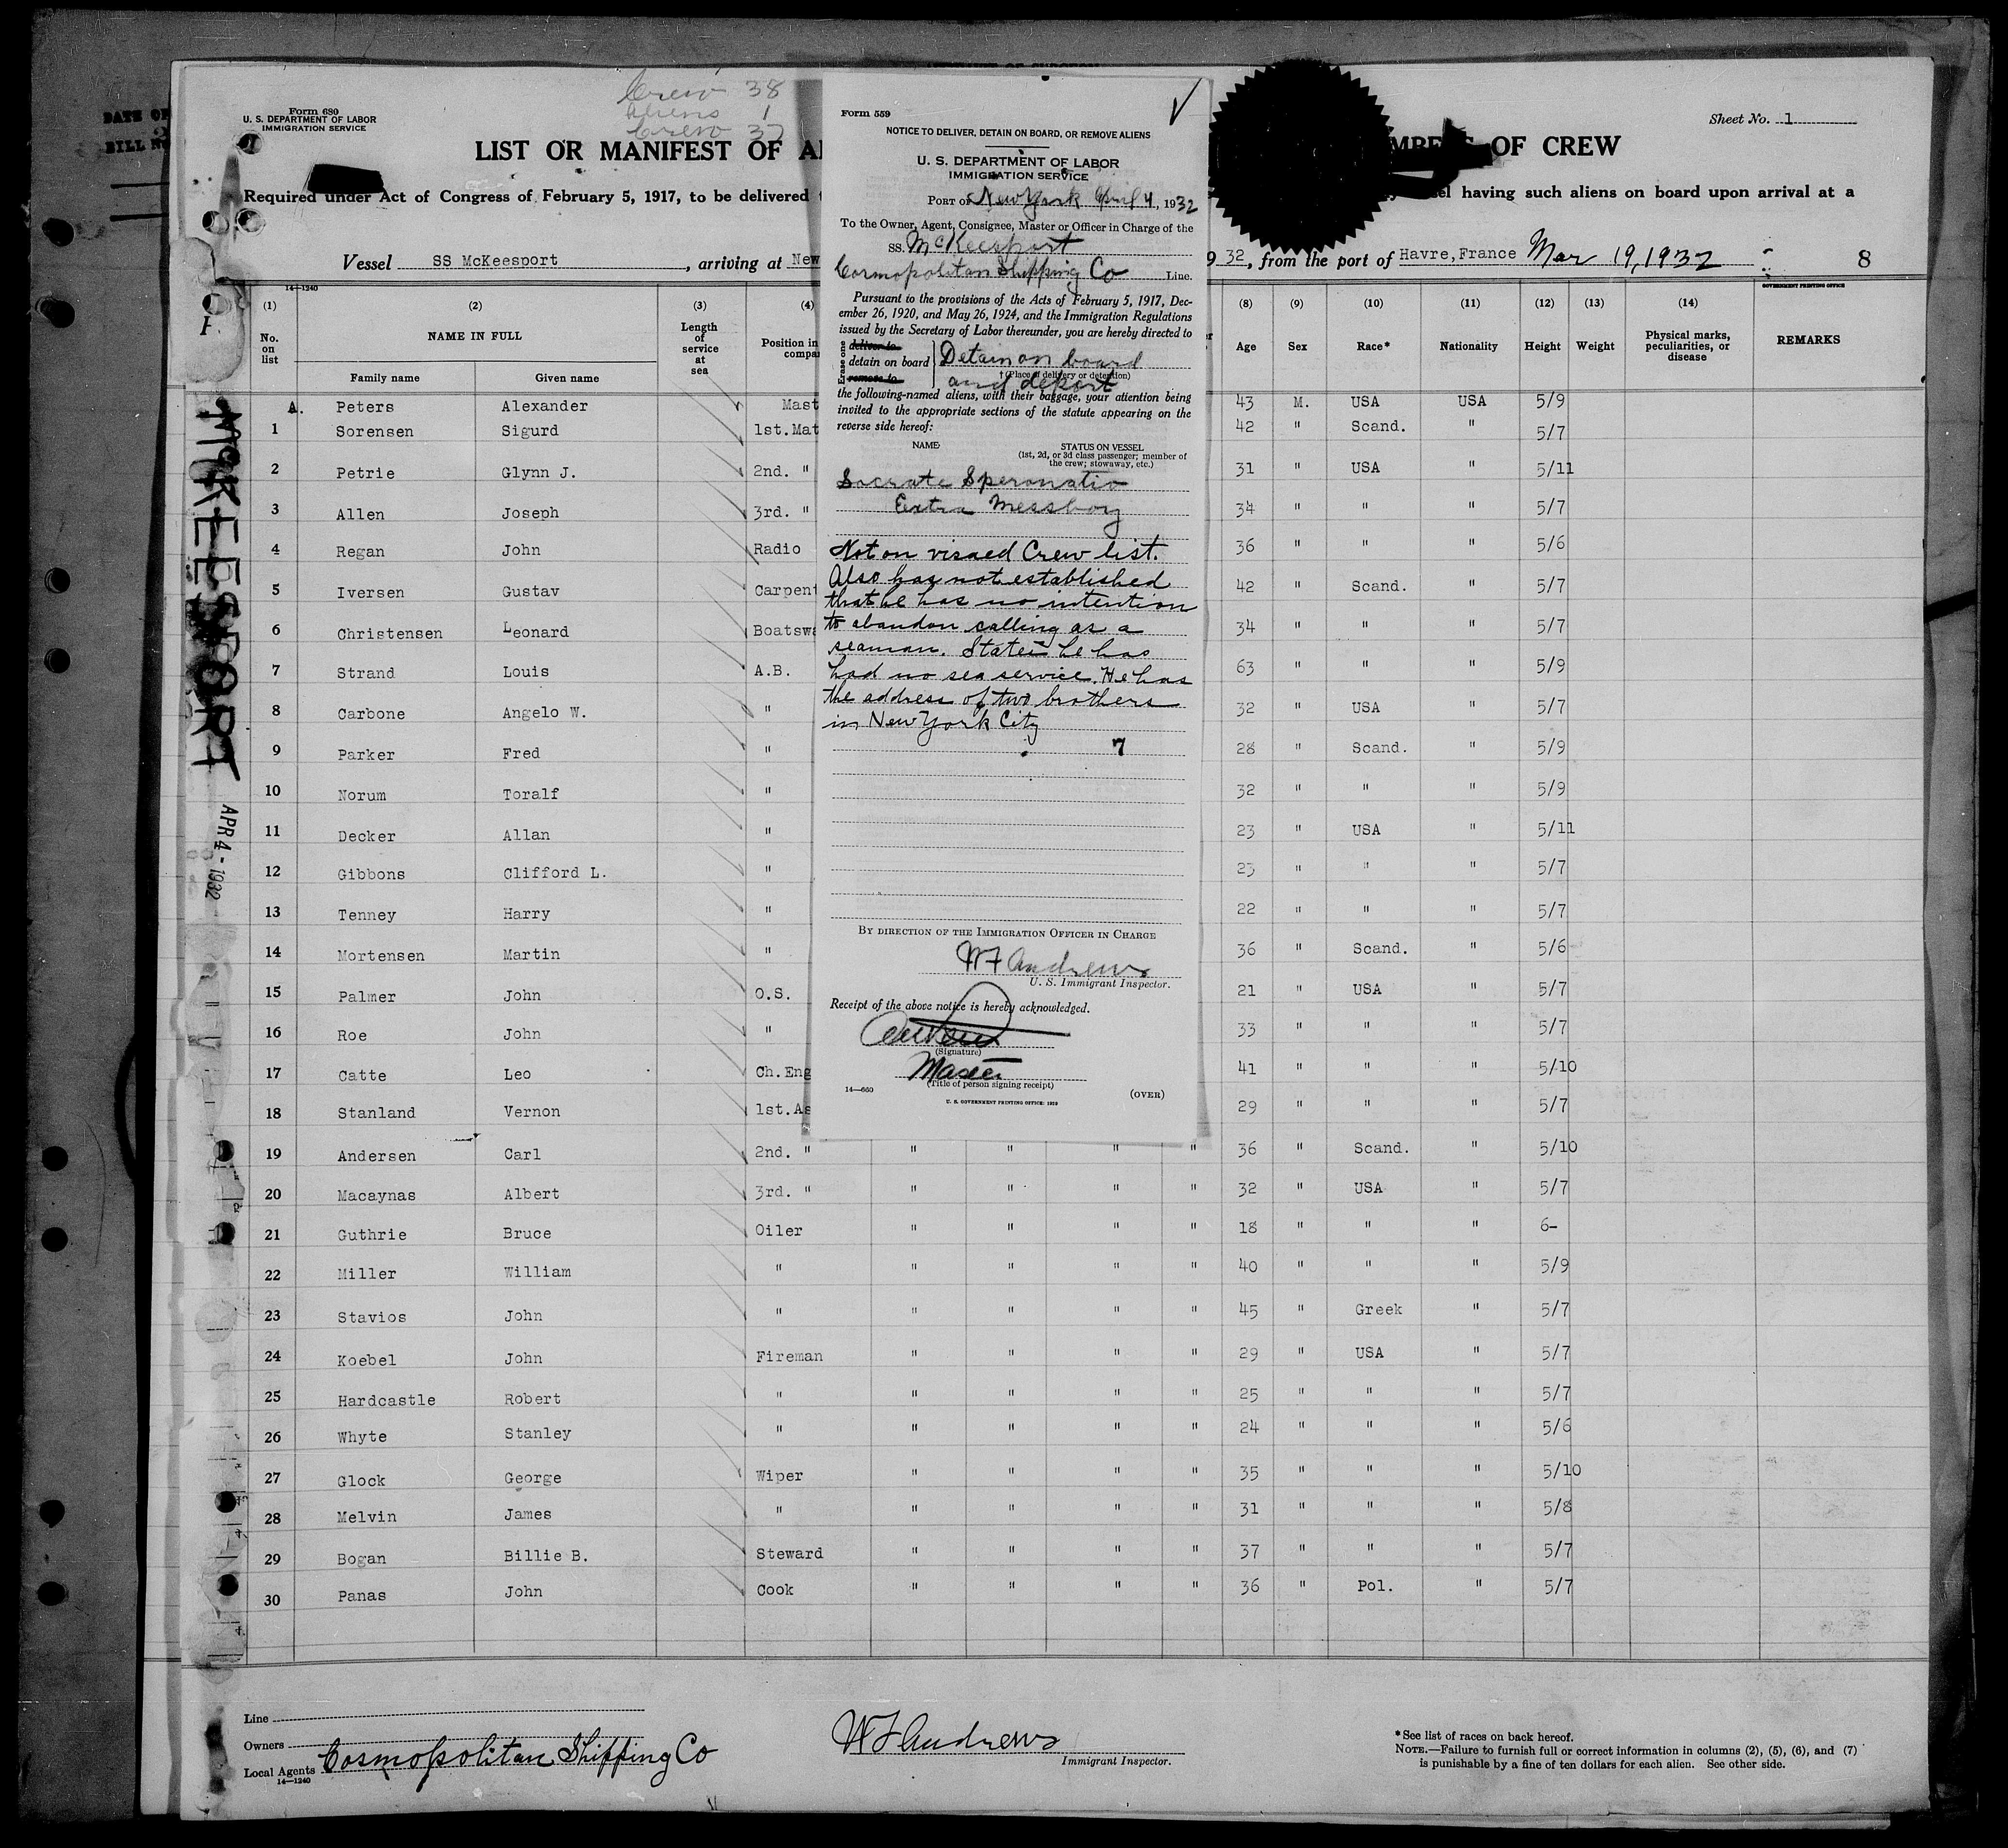 DATE OF
BILL N
Crew 38
Aliens 1
Crew 37
Form 680
U. S. DEPARTMENT OF LABOR
IMMIGRATION SERVICE
Sheet No. 1
LIST OR MANIFEST OF AL
MBERS OF CREW
Required under Act of Congress of February 5, 1917, to be delivered t
el having such aliens on board upon arrival at a
Vessel SS McKeesport, arriving at New
9 32, from the port of Havre, France Mar 19, 1932 8
14—1240
GOVERNMENT PRINTING OFFICE
(1) (2) (3) (4) (8) (9) (10) (11) (12) (13) (14)
No. on list NAME IN FULL Length of service at sea Position in compa Age Sex Race* Nationality Height Weight Physical marks, peculiarities, or disease REMARKS
Family name Given name
A. Peters Alexander Mast 43 M. USA USA 5/9
1 Sorensen Sigurd 1st.Mat 42 " Scand. " 5/7
2 Petrie Glynn J. 2nd. " 31 " USA " 5/11
3 Allen Joseph 3rd. " 34 " " " 5/7
4 Regan John Radio 36 " " " 5/6
5 Iversen Gustav Carpent 42 " Scand. " 5/7
6 Christensen Leonard Boatswa 34 " " " 5/7
7 Strand Louis A.B. 63 " " " 5/9
8 Carbone Angelo W. " 32 " USA " 5/7
9 Parker Fred " 28 " Scand. " 5/9
10 Norum Toralf " 32 " " " 5/9
11 Decker Allan " 23 " USA " 5/11
12 Gibbons Clifford L. " 23 " " " 5/7
13 Tenney Harry " 22 " " " 5/7
14 Mortensen Martin " 36 " Scand. " 5/6
15 Palmer John O.S. 21 " USA " 5/7
16 Roe John " 33 " " " 5/7
17 Catte Leo Ch.Eng 41 " " " 5/10
18 Stanland Vernon 1st.As 29 " " " 5/7
19 Andersen Carl 2nd. " " " " " 36 " Scand. " 5/10
20 Macaynas Albert 3rd. " " " " " 32 " USA " 5/7
21 Guthrie Bruce Oiler " " " " 18 " " " 6-
22 Miller William " " " " " 40 " " " 5/9
23 Stavios John " " " " " 45 " Greek " 5/7
24 Koebel John Fireman " " " " 29 " USA " 5/7
25 Hardcastle Robert " " " " " 25 " " " 5/7
26 Whyte Stanley " " " " " 24 " " " 5/6
27 Glock George Wiper " " " " 35 " " " 5/10
28 Melvin James " " " " " 31 " " " 5/8
29 Bogan Billie B. Steward " " " " 37 " " " 5/7
30 Panas John Cook " " " " 36 " Pol. " 5/7
McKEESPORT
APR 4 - 1932
Form 559
NOTICE TO DELIVER, DETAIN ON BOARD, OR REMOVE ALIENS
U. S. DEPARTMENT OF LABOR
IMMIGRATION SERVICE
PORT OF New York April 4, 1932
To the Owner, Agent, Consignee, Master or Officer in Charge of the
SS. McKeesport
Cosmopolitan Shipping Co Line.
Pursuant to the provisions of the Acts of February 5, 1917, Dec-
ember 26, 1920, and May 26, 1924, and the Immigration Regulations
issued by the Secretary of Labor thereunder, you are hereby directed to
Erase one
deliver to
detain on board Detain on board
remove to and deport
†(Place of delivery or detention)
the following-named aliens, with their baggage, your attention being
invited to the appropriate sections of the statute appearing on the
reverse side hereof:
NAME STATUS ON VESSEL
(1st, 2d, or 3d class passenger; member of
the crew; stowaway, etc.)
Socrate Speronatio
Extra Messboy
Not on visaed Crew list.
Also has not established
that he has no intention
to abandon calling as a
seaman. States he has
had no sea service. He has
the address of two brothers
in New York City
7
BY DIRECTION OF THE IMMIGRATION OFFICER IN CHARGE
WF Andrews
U. S. Immigrant Inspector.
Receipt of the above notice is hereby acknowledged.
(Signature)
Master
(Title of person signing receipt)
14—660 (OVER)
U. S. GOVERNMENT PRINTING OFFICE: 1929
Line
Owners
Local Agents Cosmopolitan Shipping Co
14—1240
WF Andrews
Immigrant Inspector.
*See list of races on back hereof.
NOTE.—Failure to furnish full or correct information in columns (2), (5), (6), and (7)
is punishable by a fine of ten dollars for each alien. See other side.